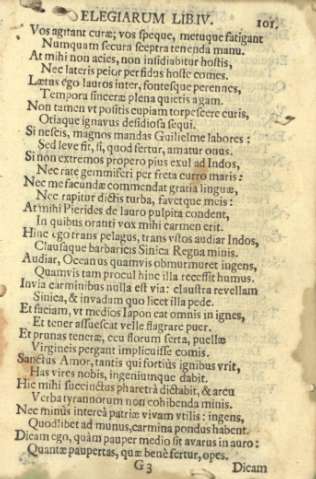 ELEGIARUM LIB IV. 101.
Vos agitant curæ; vos speque, metuque fatigant
Numquam secura sceptra tenenda manu.
At mihi non acies, non insidiabitur hostis,
Nec lateris peior perfidus hoste comes.
Lætus ego lauros inter, fontesque perennes,
Tempora sinceræ plena quietis agam.
Non tamen vt positis cupiam torpescere curis,
Otiaque ignavus desidiosa sequi.
Si nescis, magnos mandas Guilielme labores:
Sed leve fit, si, quod fertur, amatur onus.
Si non extremos propero pius exul ad Indos,
Nec rate gemmiferi per freta curro maris:
Nec me facundæ commendat gratia linguæ,
Nec rapitur dictis turba, favetque meis:
At mihi Pierides de lauro pulpita condent,
In quibus oranti vox mihi carmen erit.
Hinc ego trans pelagus, trans vstos audiar Indos,
Clausaque barbaricis Sinica Regna minis.
Audiar, Oceanus quamvis obmurmuret ingens,
Quamvis tam procul hinc illa recessit humus.
Invia carminibus nulla est via: claustra revellam
Sinica, & invadam quo licet illa pede.
Et faciam, vt medios Iapon eat omnis in ignes,
Et tener assuescat velle flagrare puer.
Et prunas teneræ, ceu florum serta, puellæ
Virgineis pergant implicuisse comis.
Sanctus Amor, tantis qui fortiùs ignibus vrit,
Has vires nobis, ingeniumque dabit.
Hic mihi succinctus pharetrâ dictabit, & arcu
Verba tyrannorum non cohibenda minis.
Nec minùs intereà patriæ vivam vtilis: ingens,
Quodlibet ad munus, carmina pondus habent.
Dicam ego, quàm pauper medio sit avarus in auro:
Quantæ paupertas, quæ benè fertur, opes.
G 3 Dicam